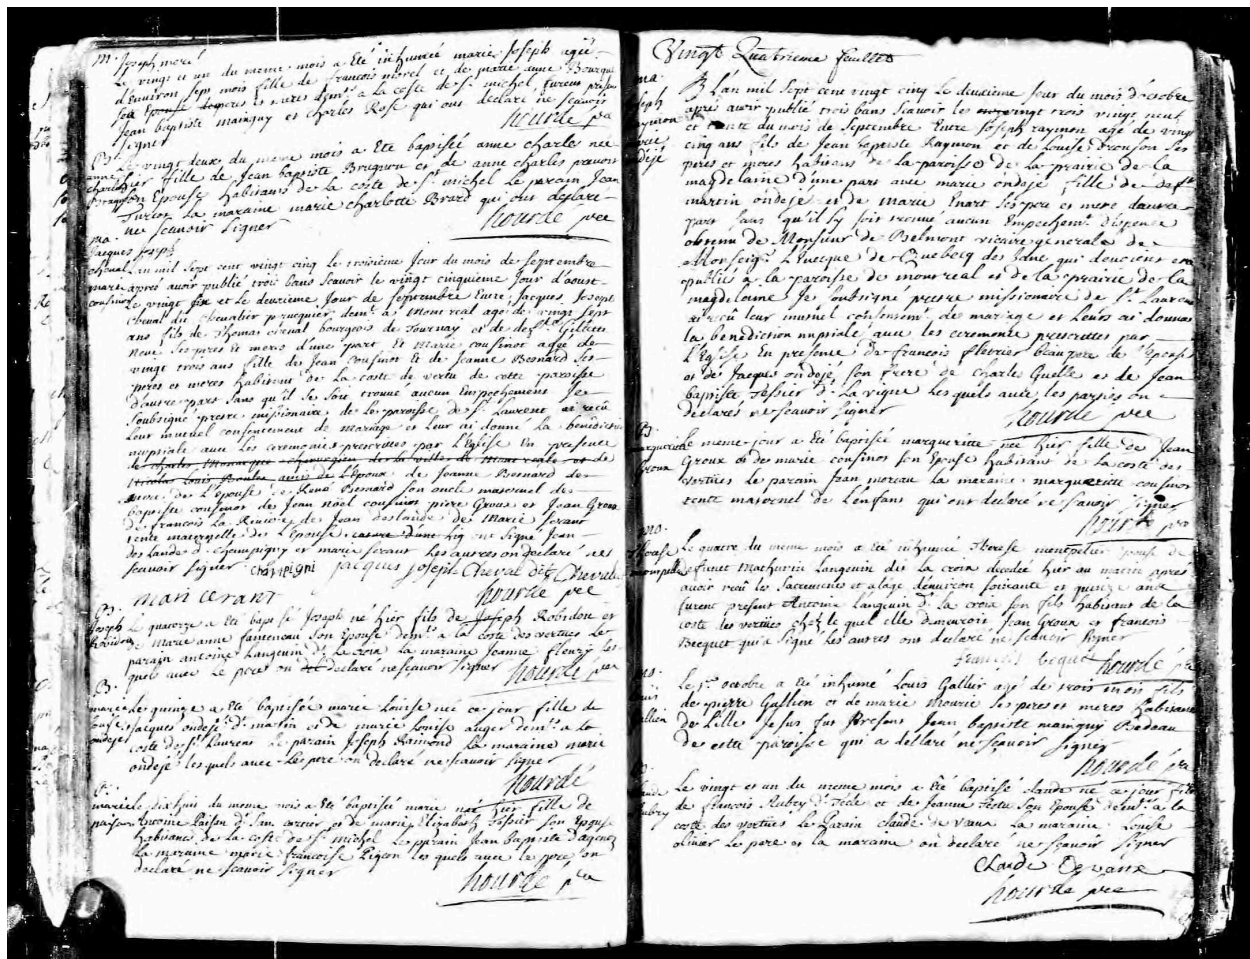 M. Joseph morel
Le vingt et un du meme mois a Eté inhumée marie Joseph agée
d'Environ sept mois fille de francois morel et de marie anne Bourque
ses peres et meres demt. a la coste de St. michel furent presens
Jean baptiste maingny et charles Rose qui ont declaré ne scavoir
signer
hourdé pre
B.
anne
charles
Le vingt deux du meme mois a Eté baptisée anne charles née
hier fille de Jean baptiste Brugnon et de anne charles prevost
son Epouse habitans de la coste de St. michel Le parain Jean
Turiot La maraine marie charlotte Brard qui ont declaré
ne scavoir signer
hourdé pre
ma.
Jacques Joseph
cheval
marie
cousinot
L'an mil sept cent vingt cinq le troisiéme Jour du mois de septembre
apres avoir publié trois bans scavoir le vingt cinquieme Jour d'aoust
le vingt six et le deuxieme Jour de septembre Entre Jacques Joseph
cheval dit chevalier demt. a Montreal agé de vingt sept
ans fils de Thomas cheval bourgeois de Tournay et de
ses peres et meres d'une part Et Marie cousinot agée de
vingt trois ans fille de Jean cousinot Et de Jeanne Besnard ses
peres et meres habitans de la coste de vertu de cette paroisse
d'autre part sans qu'il se soit trouvé aucun Empechement Je
soubsigné prestre missionaire de la paroisse de St. Laurent ai reçu
leur mutuel consentement de mariage et leur ai donné la benediction
nuptiale avec les ceremonies prescrittes par l'Eglise En presence
de charles de la ville de Montreal et de
nicolas Louis amis de l'Epoux de Jeanne Besnard
mere de l'Epouse de René Besnard son oncle maternel de
baptiste cousinot de Jean noël cousinot pierre Groux et Jean Groux
de francois La de Jean deslande de Marie serant
tente maternelle de l'Epouse ont signé Jean
deslandes d. champigny et marie serant les autres on declaré ne
scavoir signer champigni Jacques Joseph Cheval dit Chevalier
Mari cerant hourdé pre
B.
Joseph
Robidou
Le quatorze a Eté baptisé Joseph né hier fils de Joseph Robidou et
de Marie anne fameneau son Epouse demt. a la coste des vertues Le
parain antoine Langevin dt. La croix La maraine Jeanne fleury les
quels avec le pere on declaré ne scavoir signer hourdé pre
B.
marie
Louise
ondejé
Le quinze a Eté baptisée marie Louise née ce jour fille de
Jacques ondejé dt. martin et de marie Louise auger demt. a la
coste de St. Laurent Le parain Joseph Raimond La maraine marie
ondejé les quels avec le pere on declaré ne scavoir signer
hourdé
B.
marie
paisan
Le dixhuit du meme mois a Eté baptisée marie née hier fille de
Antoine Paisan dt. San et de marie Elizabeth Tessier son Epouse
habitans de la coste de St. michel Le parain Jean baptiste
La maraine marie francoise Pigeon les quels avec le pere on
declaré ne scavoir signer hourdé pre
Vingt Quatrieme feuillet
ma.
Joseph
raymon
marie
ondejé
L'an mil Sept cent vingt cinq Le deuxieme Jour du mois d'octobre
apres avoir publié trois bans Scavoir les vingt trois vingt neuf
et trente du mois de Septembre Entre Joseph raymon agé de vingt
cinq ans fils de Jean baptiste Raymon et de Louise ses
peres et meres habitans de la paroisse de la prairie de la
magdelaine d'une part avec marie ondejé fille de deft.
martin ondejé et de marie Enart ses pere et mere d'autre
part sans qu'il s'y soit trouvé aucun Empechemt. dispence
obtenu de Monsieur de Belmont vicaire generale de
Monseigr. L'Eveque de Quebecq des
publié a la paroisse de montreal et de la prairie de la
magdelaine Je soubsigné prestre missionaire de St. Laurent
ai reçu leur mutuel consentemt. de mariage et leurs ai donné
la benediction nuptiale avec les ceremonies prescrittes par
l'Eglise En presence de francois flevrier beaupere de l'Epouse
et de Jacques ondejé son frere de charles Guelle et de Jean
baptiste Tessier dt. La vigne Lesquels avec les parties on
declarés ne scavoir signer hourdé pre
B.
marguerite
Groux
Le meme jour a Eté baptisée margueritte née hier fille de Jean
Groux et de marie cousinot son Epouse habitans de la coste des
vertues Le parain Jean moreau La maraine marguerite cousinot
tente maternel de L'enfant qui ont declaré ne scavoir signer
hourdé pre
mo.
Therese
Le quatre du meme mois a Eté inhumée Therese montpellier Epouse de
defunct Mathurin Langevin dit La croix decedée hier au matin apres
avoir reçu les Sacrements et a l'age denviron soixante et quinze ans
furent present Antoine Langevin dt. La croix son fils habitant de la
coste des vertues chez le quel elle demeuroit Jean Groux et francois
Becquet qui a signé Les autres ont declaré ne scavoir signer
francois bequet hourdé pre
mo.
Louis
Gallien
Le octobre a eté inhumé Louis Gallien agé de trois mois fils
de pierre Gallien et de marie Mourie ses peres et meres habitans
de L'ille Jesus fus presens Jean baptiste mainguy Bedeau
de cette paroisse qui a declaré ne scavoir signer
hourdé pre
B.
Claude
Aubry
Le vingt et un du meme mois a Eté baptisé claude né ce jour fils
de francois Aubry dt. Tecle et de Jeanne Tetu son Epouse demt. a la
coste des vertues Le Parain claude de vaux La maraine Louise
olivier Le pere et la maraine on declaré ne scavoir signer
Claude De vaux
hourdé pre